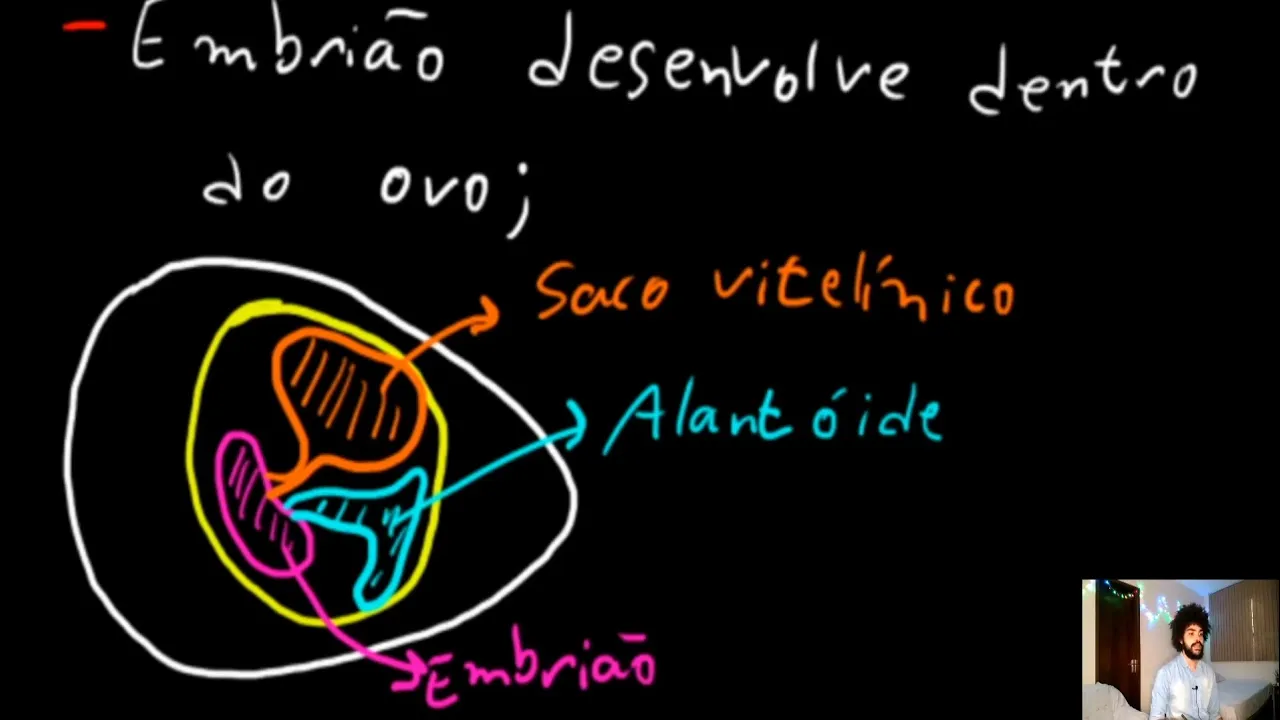 - Embrião desenvolve dentro
do ovo;
Saco vitelínico
Alantóide
Embrião